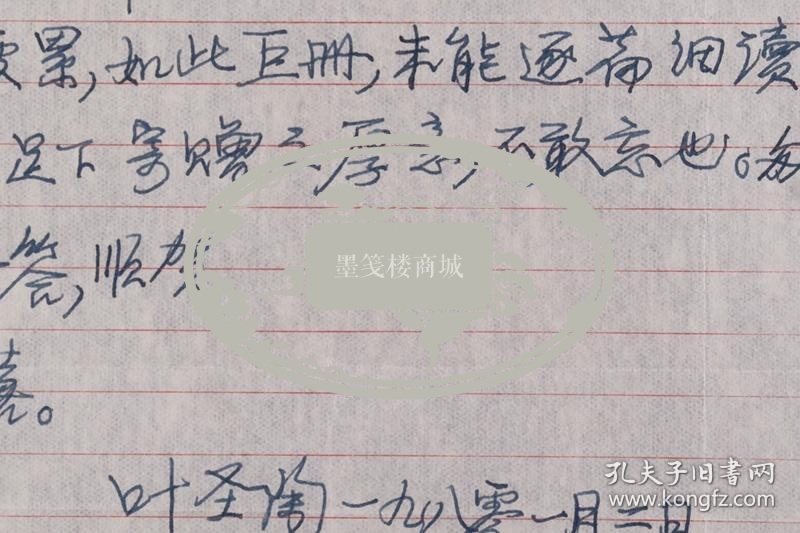 累,如此巨册,未能逐篇细读
足下寄赠之厚意,不敢忘也。
答,顺贺
墨笺楼商城
叶圣陶一九八零一月二日
孔夫子旧书网
www.kongfz.com